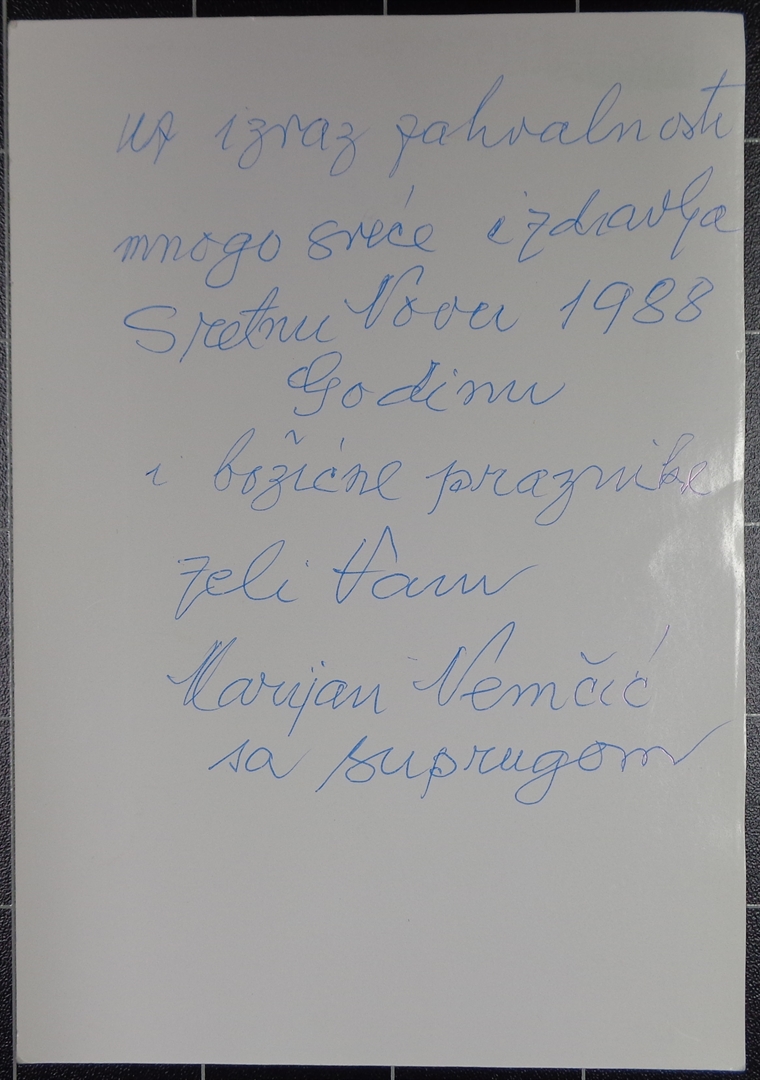 uz izraz zahvalnosti
mnogo sreće i zdravlja
Sretnu Novu 1988
Godinu
i božićne praznike
želi Vam
Marijan Nemčić
sa suprugom